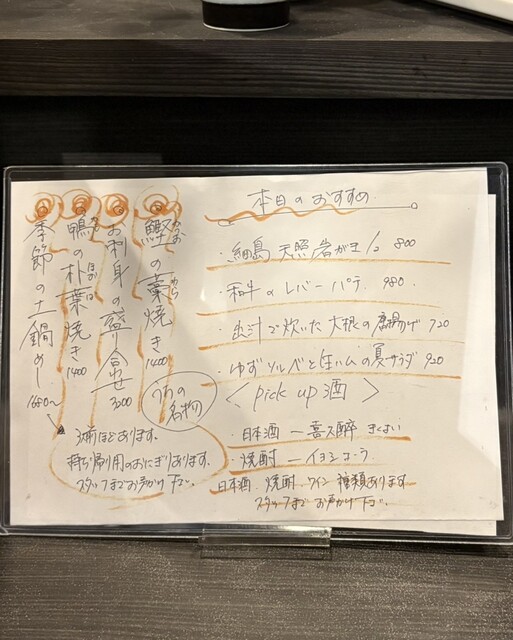 本日のおすすめ
・細島 天照岩がき 1/2 800
・和牛のレバーパテ 980
・出汁で炊いた大根の唐揚げ 720
・ゆずソルベと生ハムの夏サラダ 920
＜pick up 酒＞
・日本酒 ー 喜久酔 きくよい
・焼酎 ー
日本酒 焼酎 ワイン 種類あります
スタッフまでお声かけ下さい。
◎鰹の藁焼き 1400
かつお わら
◎お刺身の盛り合わせ 3200
◎鴨の朴葉焼き 1400
かも ほおば
◎季節の土鍋めし 1680〜
うちの名物
持ち帰り用のおにぎりあります。
スタッフまでお声かけ下さい。